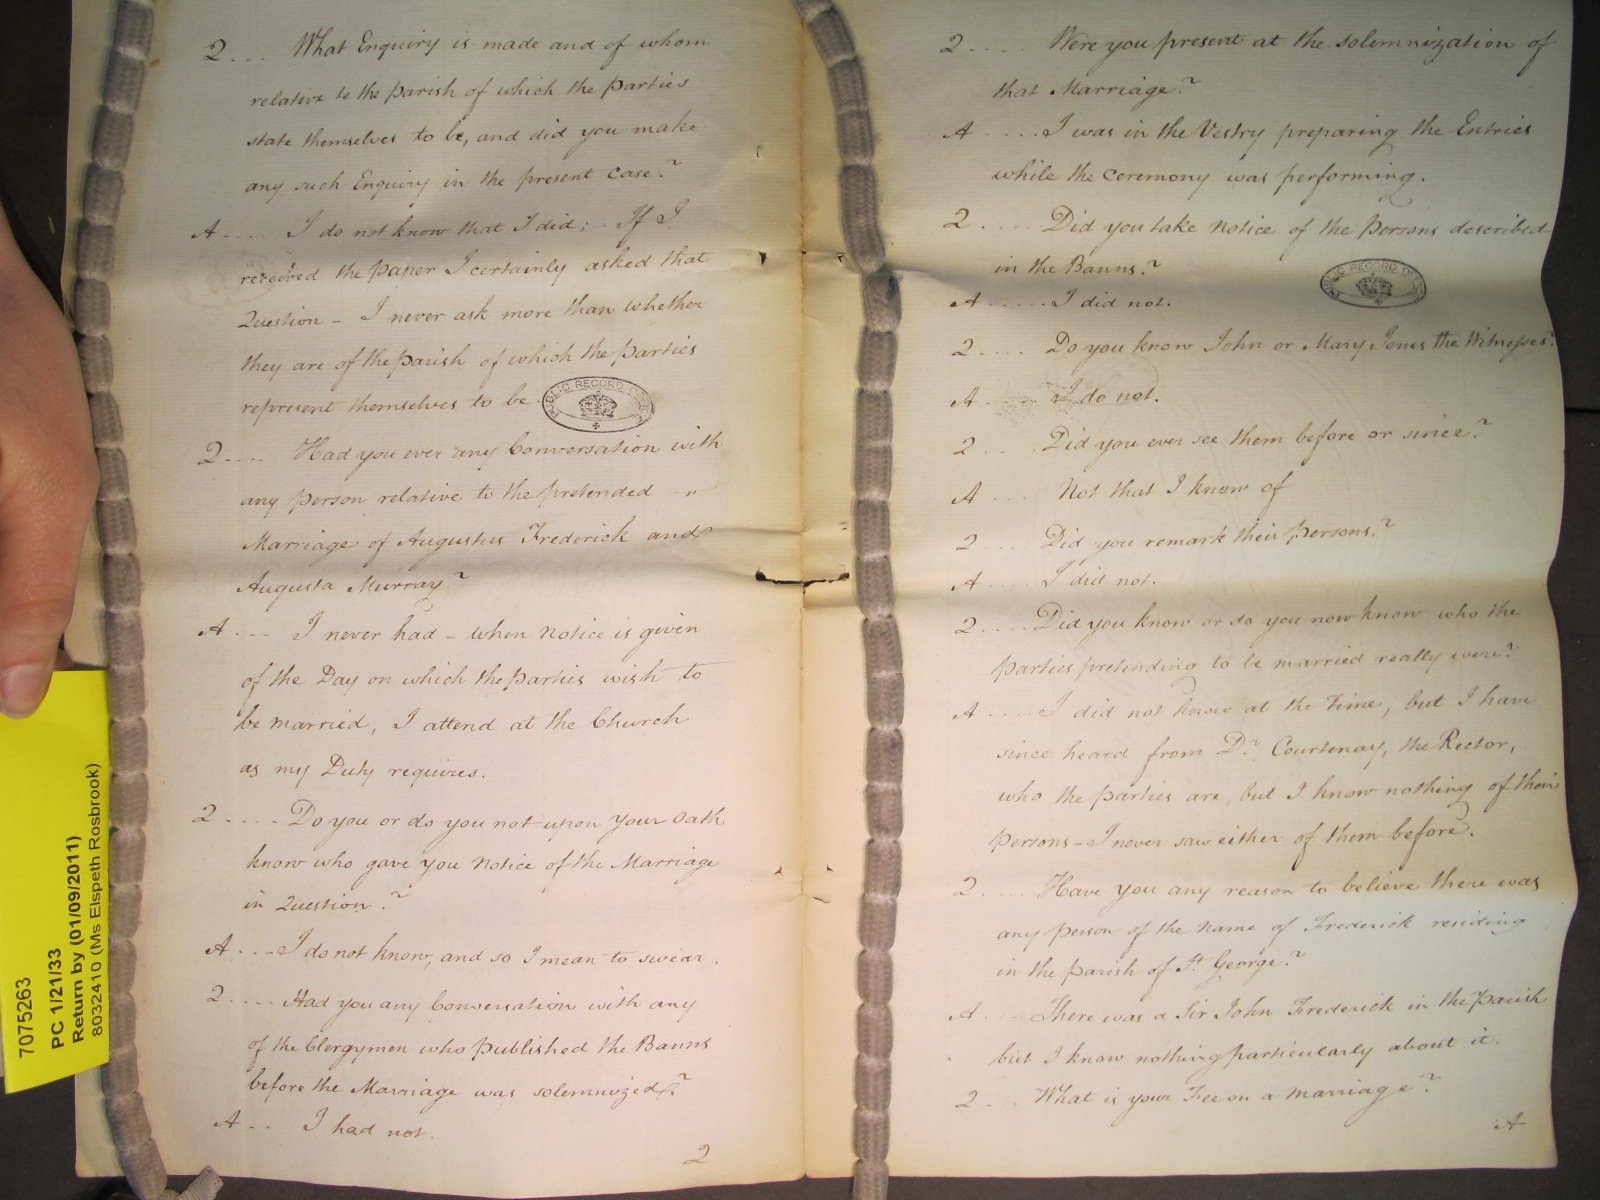 Q.... What Enquiry is made and of whom
relative to the parish of which the parties
state themselves to be, and did you make
any such Enquiry in the present case?
A.... I do not know that I did; - If I
received the paper I certainly asked that
Question - I never ask more than whether
they are of the parish of which the parties
represent themselves to be.
PUBLIC RECORD OFFICE
Q.... Had you ever any Conversation with
any person relative to the pretended
Marriage of Augustus Frederick and
Augusta Murray?
A... I never had - when notice is given
of the Day on which the parties wish to
be married, I attend at the Church
as my Duty requires.
Q.... Do you or do you not upon your oath
know who gave you notice of the Marriage
in Question?
A... I do not know, and so I mean to swear.
Q.... Had you any Conversation with any
of the Clergymen who published the Banns
before the Marriage was solemnized?
A.. I had not.
Q
Q.... Were you present at the solemnization of
that Marriage?
A.... I was in the Vestry preparing the Entries
while the ceremony was performing.
Q.... Did you take notice of the persons described
in the Banns?
PUBLIC RECORD OFFICE
A..... I did not.
Q.... Do you know John or Mary Jones the Witnesses?
A... I do not.
Q... Did you ever see them before or since?
A... Not that I know of
Q... Did you remark their persons?
A.... I did not.
Q.... Did you know or do you now know who the
parties pretending to be married really were?
A.... I did not know at the time, but I have
since heard from Dr. Courtenay, the Rector,
who the parties are, but I know nothing of their
persons - I never saw either of them before.
Q.... Have you any reason to believe there was
any person of the name of Frederick residing
in the parish of St. George?
A.... There was a Sir John Frederick in the parish
but I know nothing particularly about it.
Q... What is your Fee on a marriage?
A
7075263
PC 1/21/33
Return by (01/09/2011)
8032410 (Ms Elspeth Rosbrook)